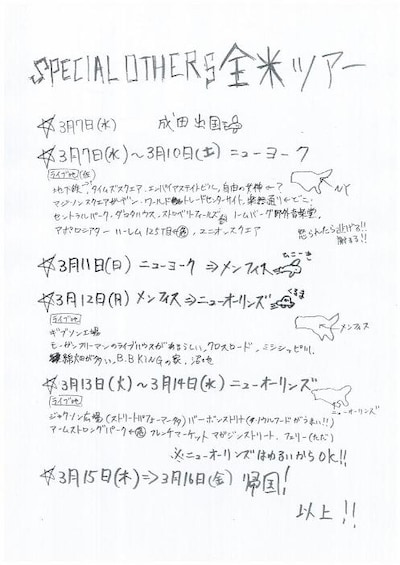 SPECIAL OTHERS 全米ツアー
☆3月7日(水) 成田出国
☆3月7日(水)～3月10日(土) ニューヨーク
ライブ地(仮)
地下鉄、タイムズスクエア、エンパイアステイトビル、自由の女神
NY
マジソンスクエアガーデン、ワールドトレードセンターサイト、
セントラルパーク、ダコタハウス、ストロベリーフィールズ 野外音楽堂、
怒られたら逃げろ!!
アポロシアター ハーレム125丁目 ユニオンスクエア
☆3月11日(日) ニューヨーク⇒メンフィス
ひこーき
☆3月12日(月) メンフィス⇒ニューオーリンズ
くるま
ライブ地
メンフィス
ギブソン工場
モーガンフリーマンのライブハウスがあるらしい、クロスロード、ミシシッピ川、
綿畑が多い、B.B KINGの家、沼地
☆3月13日(火)～3月14日(水) ニューオーリンズ
ライブ地
ニューオーリンズ
ジャクソン広場(ストリートパフォーマー多) バーボンストリート(ソウルフードがうまい!!)
アームストロングパーク フレンチマーケット マガジンストリート、フェリー(ただ)
※ニューオーリンズはゆるいからOK!!
☆3月15日(木)⇒3月16日(金) 帰国!
以上!!